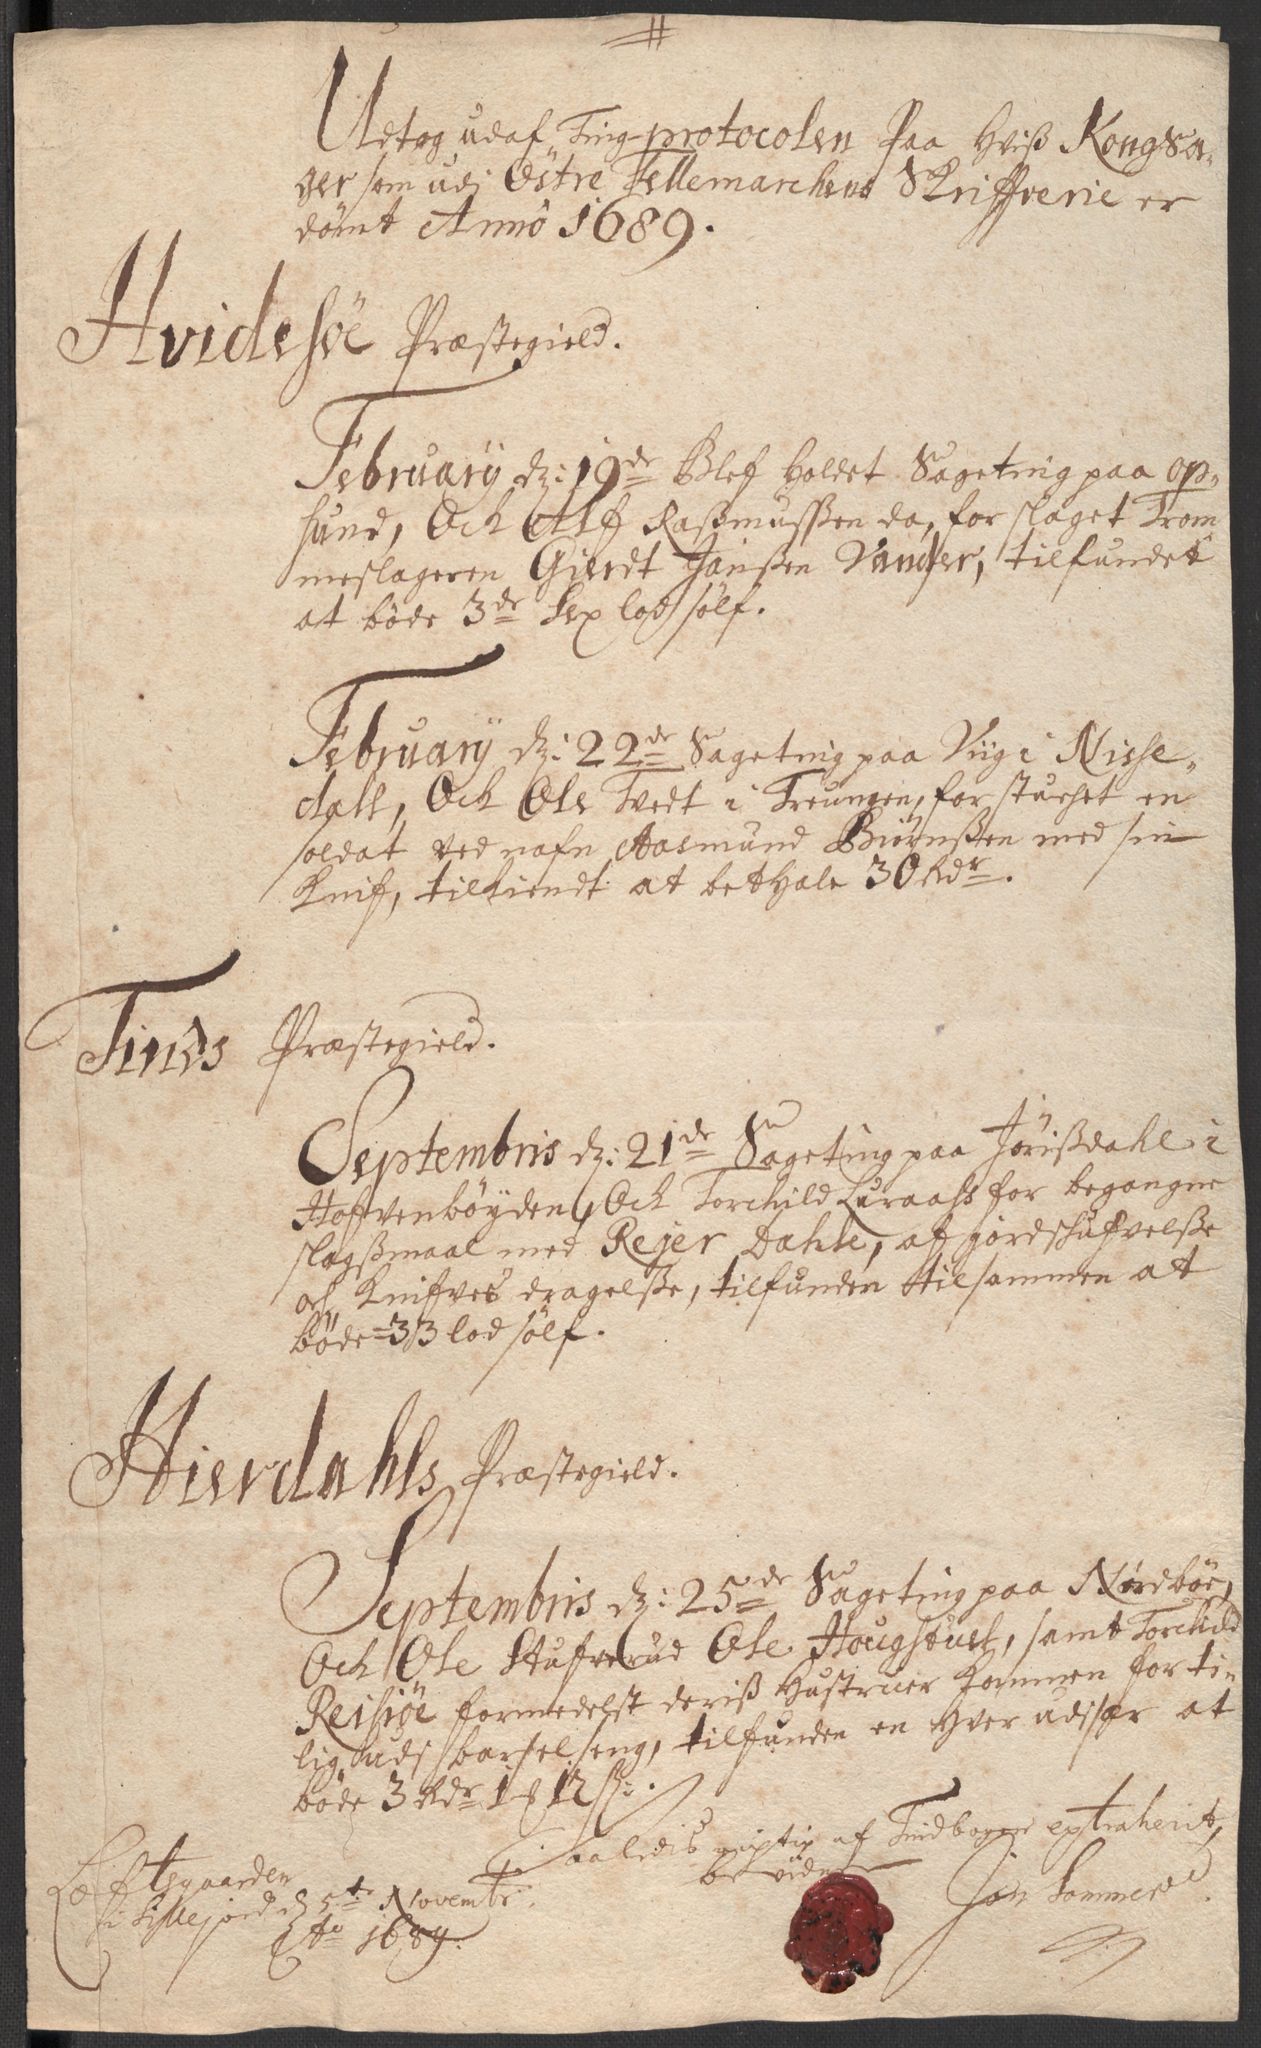 Udtog udaf Ting-protocolen Paa Hviß Kongsa-
ger som udj Östre Tellemarchens Skriffverie er
dömt Anno 1689.
Hvidesöe Præstegield.
February dz: 19de Blef Holdet Sageting paa Op-
sund, Och Alf Raßmußen da, for slaget Trom
meslageren Gierdt Janßen Vander, tilfundet
at böde 3de Sex lod sölf.
February dz: 22de Sageting paa Viig i Nisse-
dall, Och Ole Tvedt i Treungen, for stuchet en
soldat ved nafn Aasmund Biörnßen med sin
Knif, tilkiendt at bethale 30 Rdr.
Tinds Præstegield.
Septembris dz: 21de Sageting paa Jörißdahl i
Hoffvenböyden, Och Torchild Luraass for begangne
slagßmaal med Rejer Dahle, af jordschufvelße
och Knifves dragelße, tilfunden tilsammen at
böde 33 lod sölf.
Hierdahls Præstegield.
Septembris dz: 25de Sageting paa Nordböe,
Och Ole Stufverud Ole Houghuus, samt Torchild
Reisiöe formedelst deriß Hustruer kommen for tii
lig udj barsel seng, tilfunden en Hver udj sær at
böde 3 Rdr 1 12 ß:
Saaledis rigtig af Tingbogen extraherit,
bevidner
Jön Sommer
Löfftsgaarden
i Sillejord d 5te Novembr:
Ao 1689.